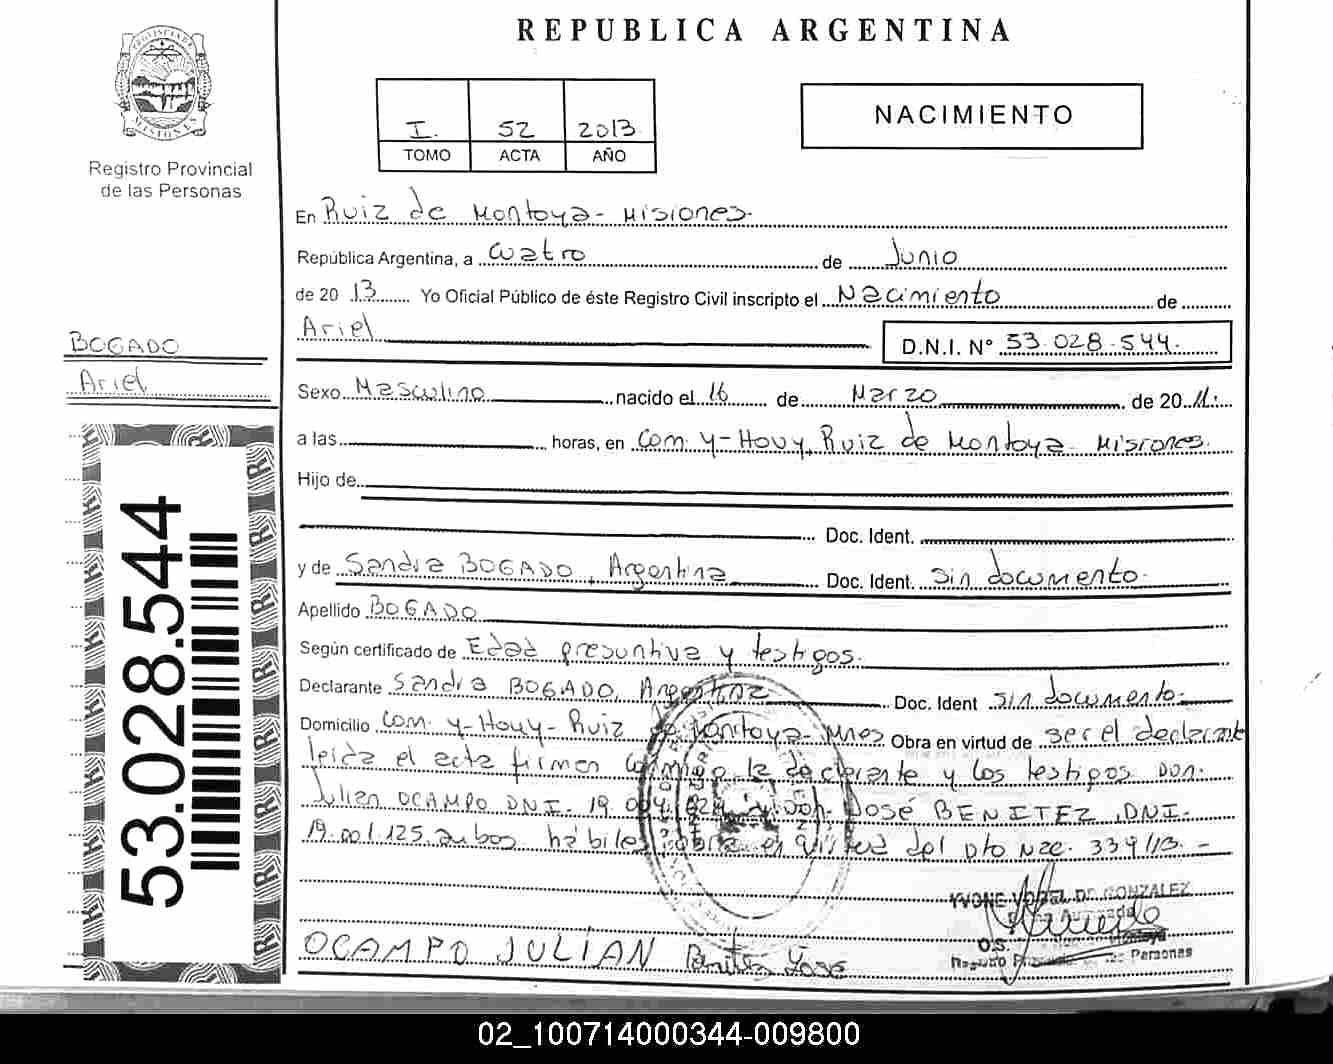 REPUBLICA ARGENTINA
PROVINCIA DE
MISIONES
Registro Provincial
de las Personas
I. 52 2013
TOMO ACTA AÑO
NACIMIENTO
En Ruiz de Montoya - Misiones.
República Argentina, a cuatro de Junio
de 20 13 Yo Oficial Público de éste Registro Civil inscripto el Nacimiento de
Ariel
D.N.I. N° 53.028.544.
BOGADO
Ariel
Sexo Masculino nacido el 16 de Marzo de 20 11.
a las horas, en Com. Y-Hovy, Ruiz de Montoya - Misiones.
Hijo de
Doc. Ident.
y de Sandra BOGADO, Argentina Doc. Ident. sin documento.
Apellido BOGADO
Según certificado de Edad presuntiva y testigos.
Declarante Sandra BOGADO, Argentina Doc. Ident sin documento.
Domicilio Com. Y-Hovy - Ruiz de Montoya - Mnes Obra en virtud de ser el declarante
leida el acta firman conmigo la declarante y los testigos Don.
Julian OCAMPO DNI. 19. y don José BENITEZ, DNI.
19.001.125. ambos hábiles. del Dto Nac. 339/13. -
53.028.544
YVONE DE GONZALEZ
O.S.
Registro de las Personas
OCAMPO JULIAN Benitez José
02_100714000344-009800